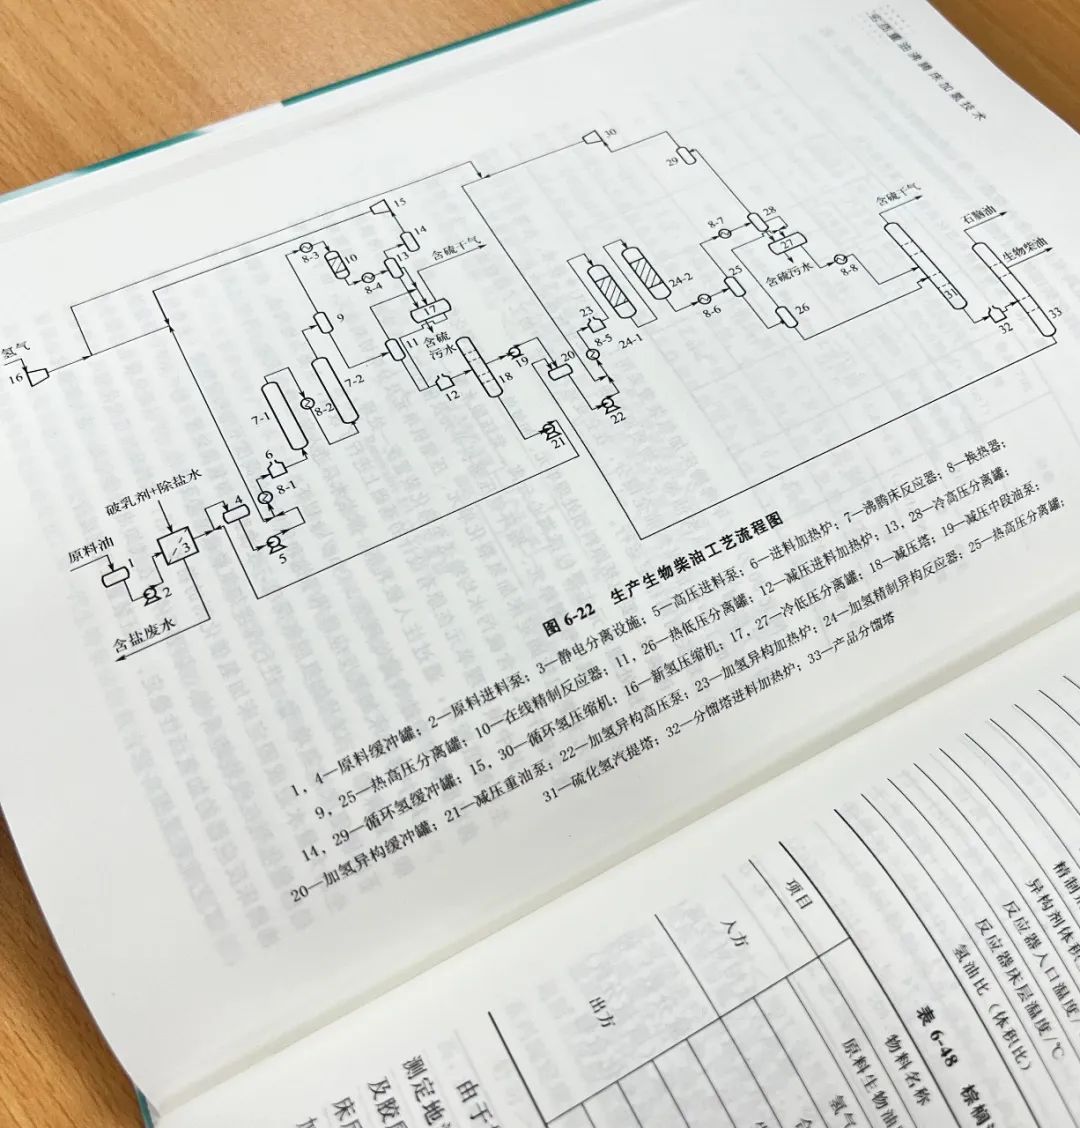 劣质重油沸腾床加氢技术
氢气
16
15
30
29
14
13
8-3
10
8-4
含硫干气
17
含硫
污水
9
11
7-1
8-2
7-2
12
18
19
20
21
22
8-5
23
24-1
24-2
8-6
8-7
25
26
28
27
含硫污水
8-8
含硫干气
31
32
石脑油
生物柴油
33
破乳剂+除盐水
原料油
1
2
3
4
5
6
8-1
含盐废水
图 6-22 生产生物柴油工艺流程图
1，4—原料缓冲罐；2—原料进料泵；3—静电分离设施；5—高压进料泵；6—进料加热炉；7—沸腾床反应器；8—换热器；
9，25—热高压分离罐；10—在线精制反应器；11，26—热低压分离罐；12—减压进料加热炉；13，28—冷高压分离罐；
14，29—循环氢缓冲罐；15，30—循环氢压缩机；16—新氢压缩机；17，27—冷低压分离罐；18—减压塔；19—减压中段油泵；
20—加氢异构缓冲罐；21—减压重油泵；22—加氢异构高压泵；23—加氢异构加热炉；24—加氢精制异构反应器；25—热高压分离罐；
31—硫化氢汽提塔；32—分馏塔进料加热炉；33—产品分馏塔
项目
入方
出方
精制
异构剂体积
反应器入口温度/
反应器床层温度/℃
氢油比（体积比）
表 6-48 棕榈
物料名称
原料生物油
氢气
由于
测定地
及胶
床